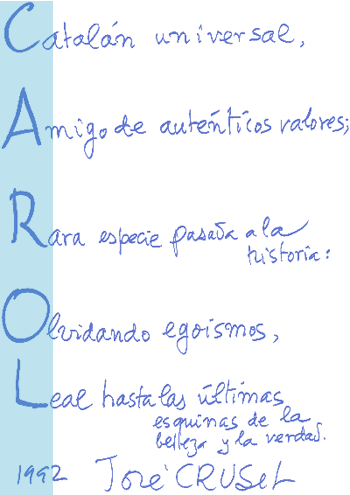 Catalán universal,
Amigo de auténticos valores;
Rara especie pasada a la
historia:
Olvidando egoísmos,
Leal hasta las últimas
esquinas de la
belleza y la verdad.
1992 José CRUSET